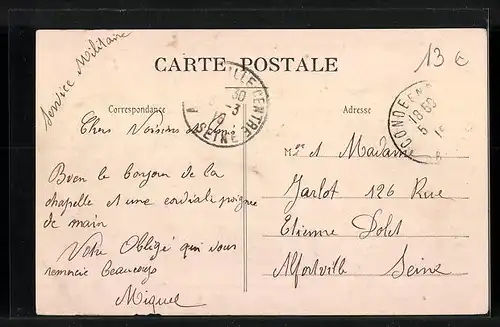 Service Militaire
13 €
CARTE POSTALE
VILLE CENTRE
30
-3
SEINE
CONDE EN
18 50
5
Correspondance
Adresse
Chers Voisins et
Bien le bonjour de la
chapelle et une cordiale poignée
de main
Votre Obligé qui vous
remercie beaucoup
Miquel
Mr et Madame
Jarlot 126 Rue
Etienne Dolet
Alfortville Seine